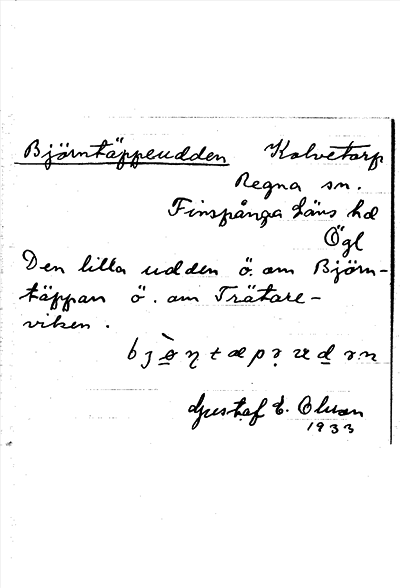 Björntäppeudden Kolvetorp
Regna sn.
Finspånga läns hd
Ögl
Den lilla udden ö. om Björn-
täppan ö. om Trätare-
viken.
Gustaf E. Olson
1933